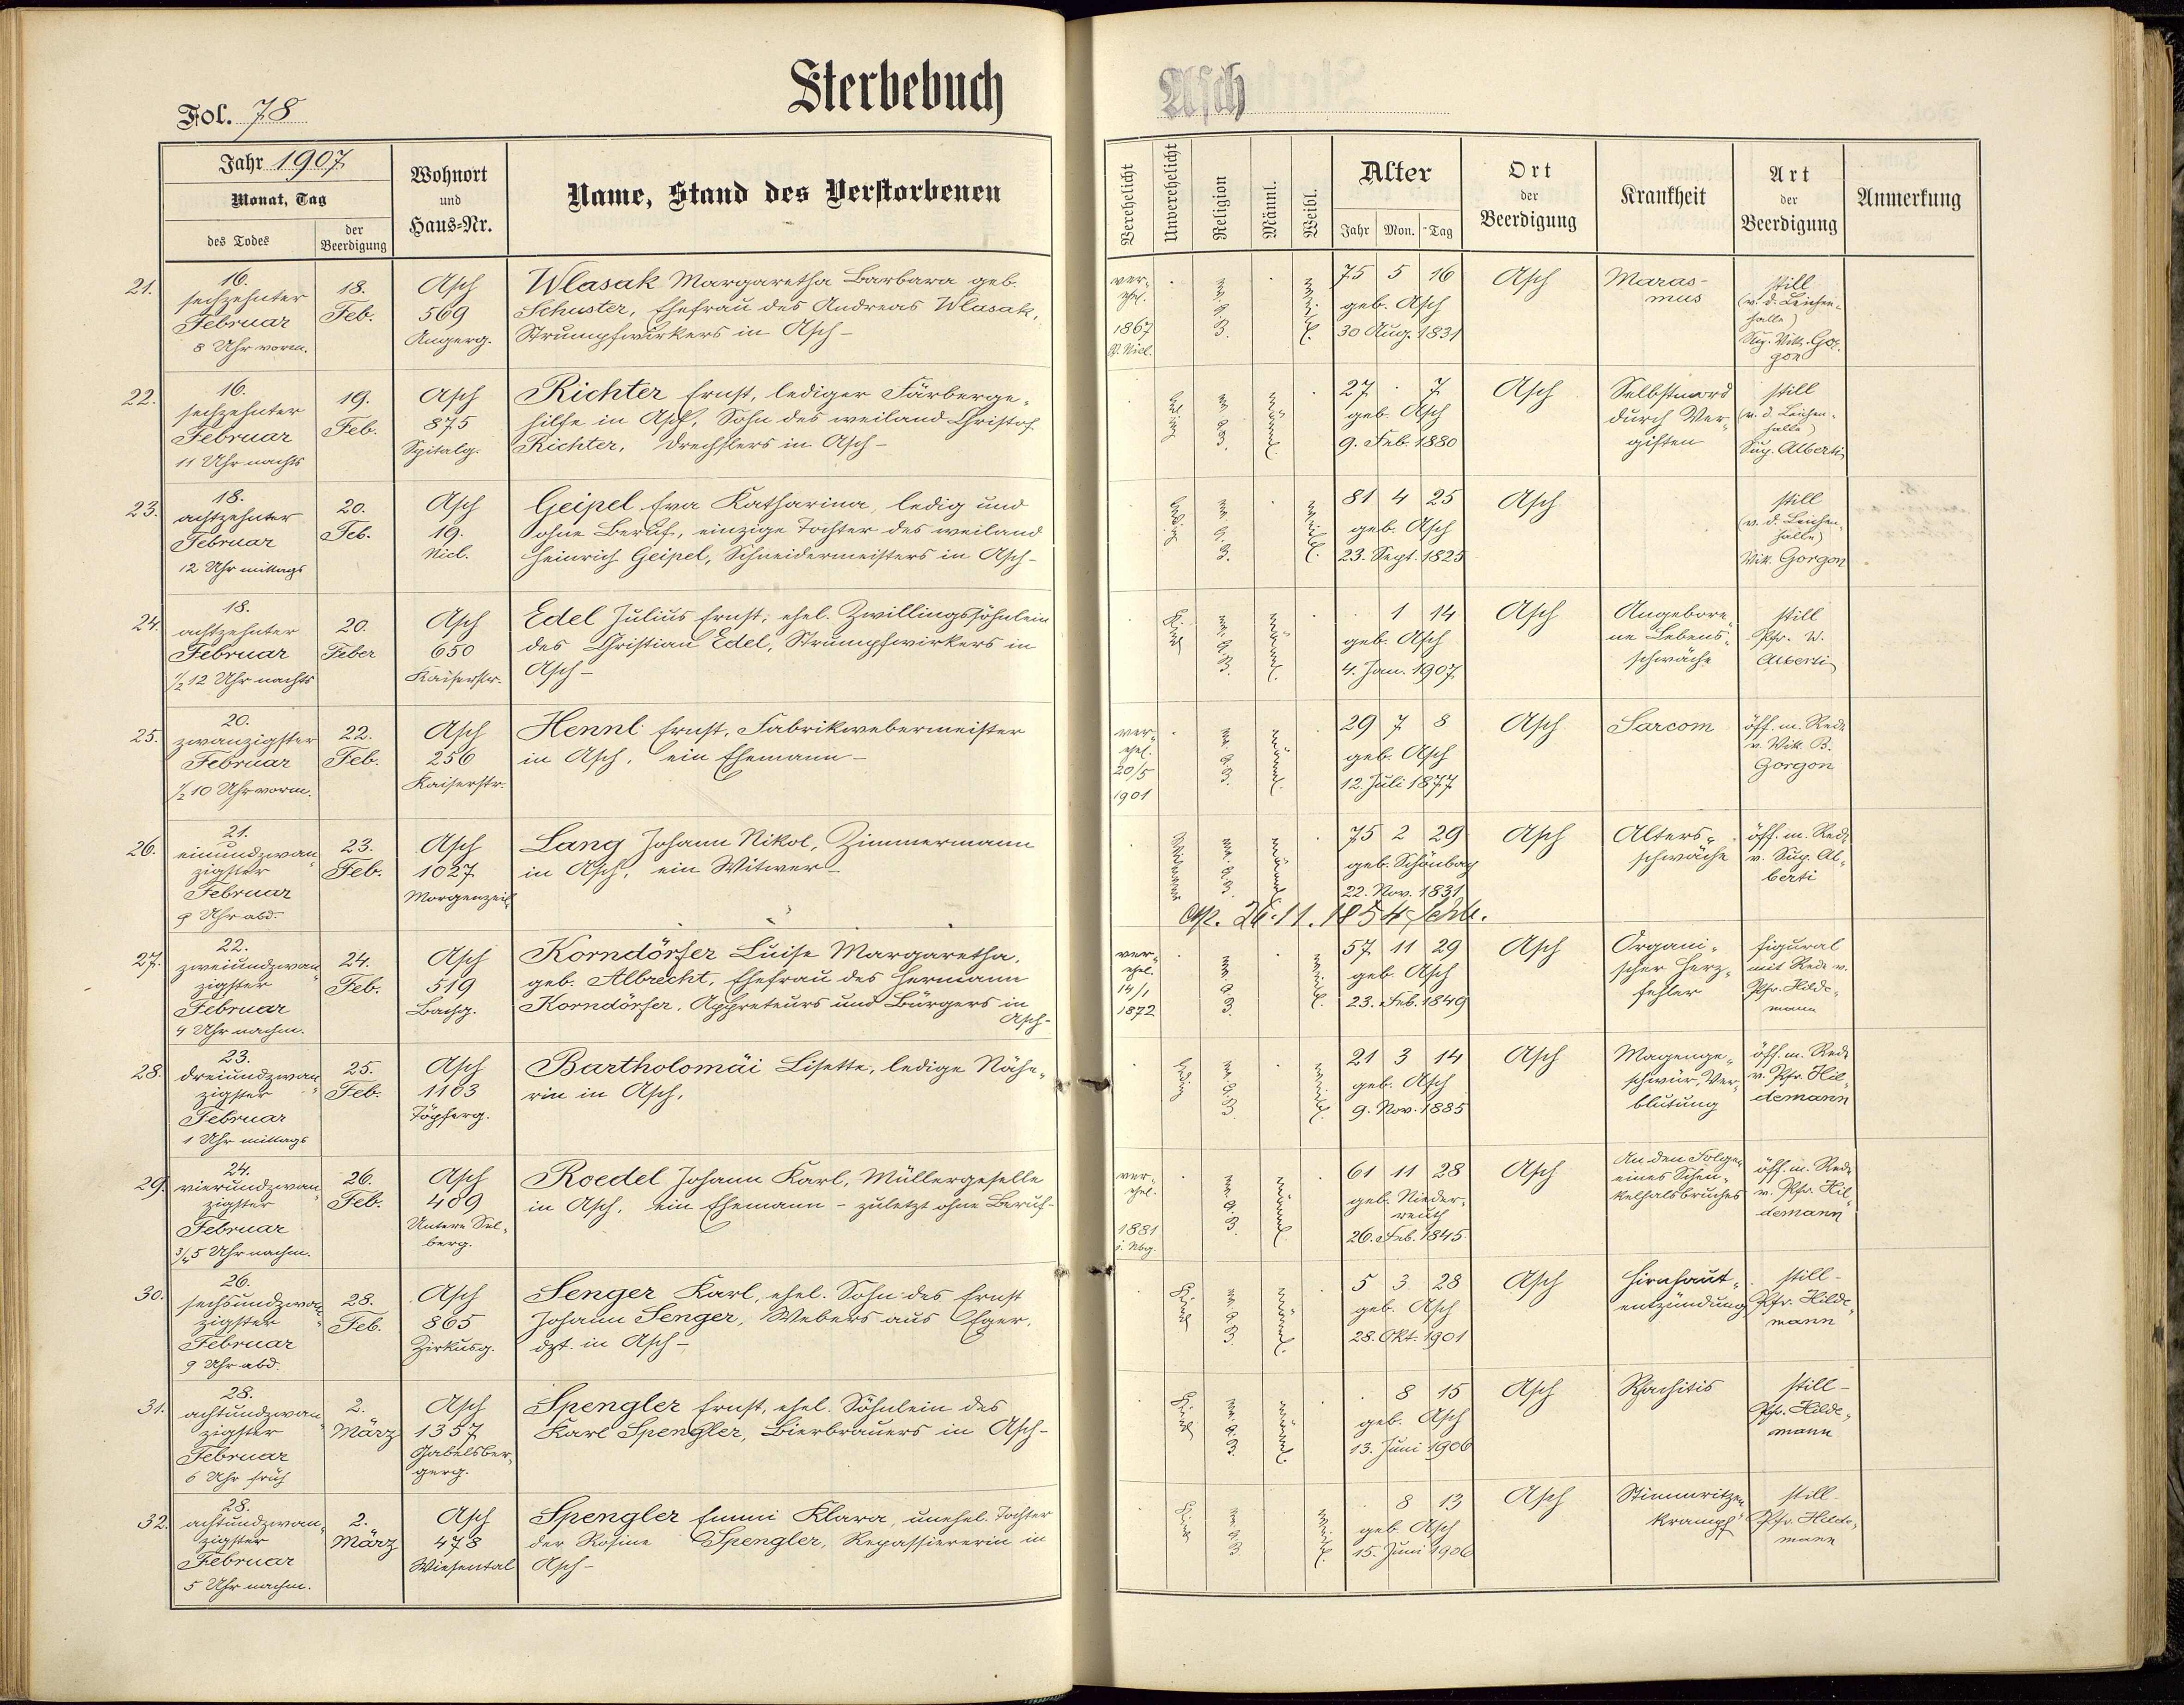 Fol. 78
Sterbebuch
Asch
Jahr 1907
Monat, Tag
des Todes
der Beerdigung
Wohnort
und
Haus-Nr.
Name, Stand des Verstorbenen
Verehelicht
Unverehelicht
Religion
Männl.
Weibl.
Alter
Jahr Mon. Tag
Ort
der
Beerdigung
Krankheit
Art
der
Beerdigung
Anmerkung
21.
16.
sechzehnter
Februar
8 Uhr vorm.
18.
Feb.
Asch
569
Angerg.
Wlasak Margaretha Barbara geb.
Schuster, Ehefrau des Andreas Wlasak,
Strumpfwirkers in Asch-
ver-
ehel.
1867
75 5 16
geb. Asch
30 Aug. 1831
Asch
Maras-
mus
still
(v. d. Leichen-
halle)
Sup. Vik. Gor-
gon
22.
16.
sechzehnter
Februar
11 Uhr nachts
19.
Feb.
Asch
875
Spitalg.
Richter Ernst, lediger Färberge-
hilfe in Asch, Sohn des weiland Christof
Richter, Drechslers in Asch-
ledig
männl.
27 . 7
geb. Asch
9. Feb. 1880
Asch
Selbstmord
durch Ver-
giften
still
(v. d. Leichen-
halle)
Sup. Alberti
23.
18.
achtzehnter
Februar
12 Uhr mittags
20.
Feb.
Asch
19.
Nicl.
Geipel Eva Katharina, ledig und
ohne Beruf, einzige Tochter des weiland
Heinrich Geipel, Schneidermeisters in Asch-
ledig
weibl.
81 4 25
geb. Asch
23. Sept. 1825
Asch
still
(v. d. Leichen-
halle)
Vik. Gorgon
24.
18.
achtzehnter
Februar
½12 Uhr nachts
20.
Feber
Asch
650
Kaiserstr.
Edel Julius Ernst, ehel. Zwillingssöhnlein
des Christian Edel, Strumpfwirkers in
Asch-
Kind
männl.
1 14
geb. Asch
4. Jan. 1907
Asch
Angebore-
ne Lebens-
schwäche
still
Pfr. W.
Alberti
25.
20.
zwanzigster
Februar
½10 Uhr vorm.
22.
Feb.
Asch
256
Kaiserstr.
Hennl Ernst, Fabrikwebermeister
in Asch, ein Ehemann-
ver-
ehel.
20/5
1901
männl.
29 7 8
geb. Asch
12. Juli 1877
Asch
Sarcom
öff. m. Rede
v. Vik. B.
Gorgon
26.
21.
einundzwan-
zigster
Februar
9 Uhr abd.
23.
Feb.
Asch
1027
Morgenzeil
Lang Johann Nikol, Zimmermann
in Asch, ein Witwer-
Witwer
männl.
75 2 29
geb. Schönbach
22. Nov. 1831
Asch
Alters-
schwäche
öff. m. Rede
v. Sup. Al-
berti
cop. 26.11.1854
27.
22.
zweiundzwan-
zigster
Februar
4 Uhr nachm.
24.
Feb.
Asch
519
Bachg.
Korndörfer Luise Margaretha,
geb. Albrecht, Ehefrau des Hermann
Korndörfer, Appreteurs und Bürgers in
Asch-
ver-
ehel.
14/1
1872
weibl.
57 11 29
geb. Asch
23. Feb. 1849
Asch
Organi-
scher Herz-
fehler
figural
mit Rede v.
Pfr. Hilde-
mann
28.
23.
dreiundzwan-
zigster
Februar
1 Uhr mittags
25.
Feb.
Asch
1103
Töpferg.
Bartholomäi Lisette, ledige Nähe-
rin in Asch,
ledig
weibl.
21 3 14
geb. Asch
9. Nov. 1885
Asch
Magenge-
schwür, Ver-
blutung
öff. m. Rede
v. Pfr. Hil-
demann
29.
24.
vierundzwan-
zigster
Februar
¾5 Uhr nachm.
26.
Feb.
Asch
489
Untere Sel-
berg.
Roedel Johann Karl, Müllergeselle
in Asch, ein Ehemann - zuletzt ohne Beruf-
ver-
ehel.
1881
männl.
61 11 28
geb. Nieder-
reuth
26. Feb. 1845
Asch
An den Folgen
eines Schen-
kelhalsbruches
öff. m. Rede
v. Pfr. Hil-
demann
30.
26.
sechsundzwan-
zigster
Februar
9 Uhr abd.
28.
Feb.
Asch
865
Zirkusg.
Senger Karl, ehel. Sohn des Ernst
Johann Senger, Webers aus Eger,
dzt. in Asch-
Kind
männl.
5 3 28
geb. Asch
28. Okt. 1901
Asch
Hirnhaut-
entzündung
still-
Pfr. Hilde-
mann
31.
28.
achtundzwan-
zigster
Februar
6 Uhr früh
2.
März
Asch
1357
Gabelsber-
gerg.
Spengler Ernst, ehel. Söhnlein des
Karl Spengler, Bierbrauers in Asch-
Kind
männl.
8 15
geb. Asch
13. Juni 1906
Asch
Rhachitis
still-
Pfr. Hilde-
mann
32.
28.
achtundzwan-
zigster
Februar
5 Uhr nachm.
2.
März
Asch
478
Wiesental
Spengler Emmi Klara, unehel. Tochter
der Rosine Spengler, Repassiererin in
Asch-
Kind
weibl.
8 13
geb. Asch
15. Juni 1906
Asch
Stimmritzen-
krampf
still-
Pfr. Hilde-
mann